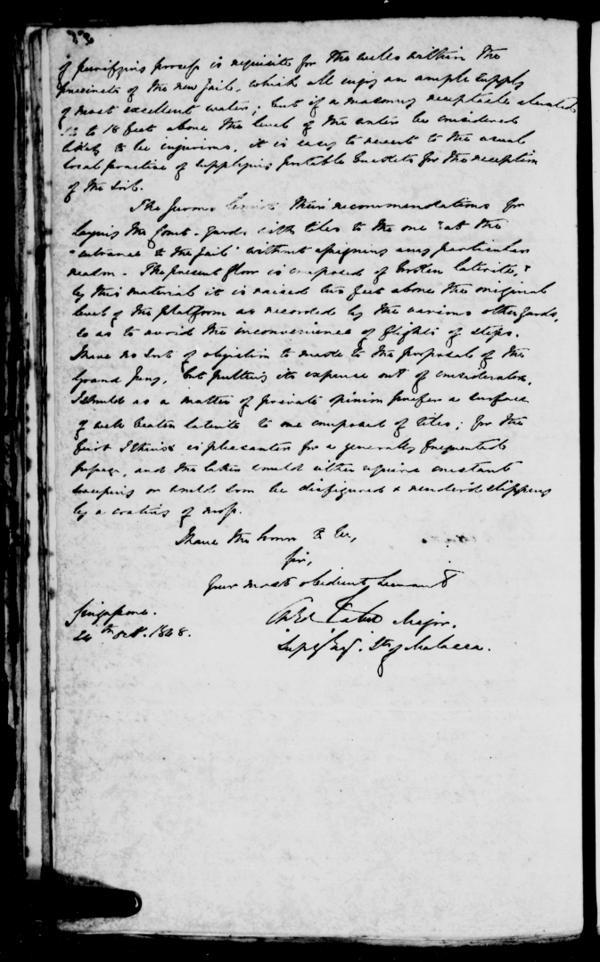 33
of purifying process is requisite for the wells within the
precincts of the new Jail, which all enjoy an ample supply
of most excellent water; but if a masonry receptacle elevated
to 18 feet above the level of the water be considered
likely to be injurious, it is easy to revert to the usual
local practice of supplying portable buckets for the reception
of the soil.
The Jurors their recommendations for
laying the Court-yards with tiles to the one "at the
entrance to the jail" without assigning any particular
reason. The present floor is composed of broken laterite, &
by this material it is raised two feet above the original
level of the platform as recorded by the various other yards,
so as to avoid the inconvenience of flights of steps.
I have no sort of objection to to the proposal of the
Grand Jury, but putting its expense out of consideration,
I should as a matter of private opinion prefer a surface
of well beaten laterite to one composed of tiles; for the
first I think is pleasanter for a generally frequented
passage, and the latter would either require constant
sweeping or would soon be disfigured & rendered slippery
by a coating of moss.
I have the honor &ca,
Sir,
Your most obedient Servant
Singapore. Major.
24th Oct. 1848. Supg Eng. Sts of Malacca.